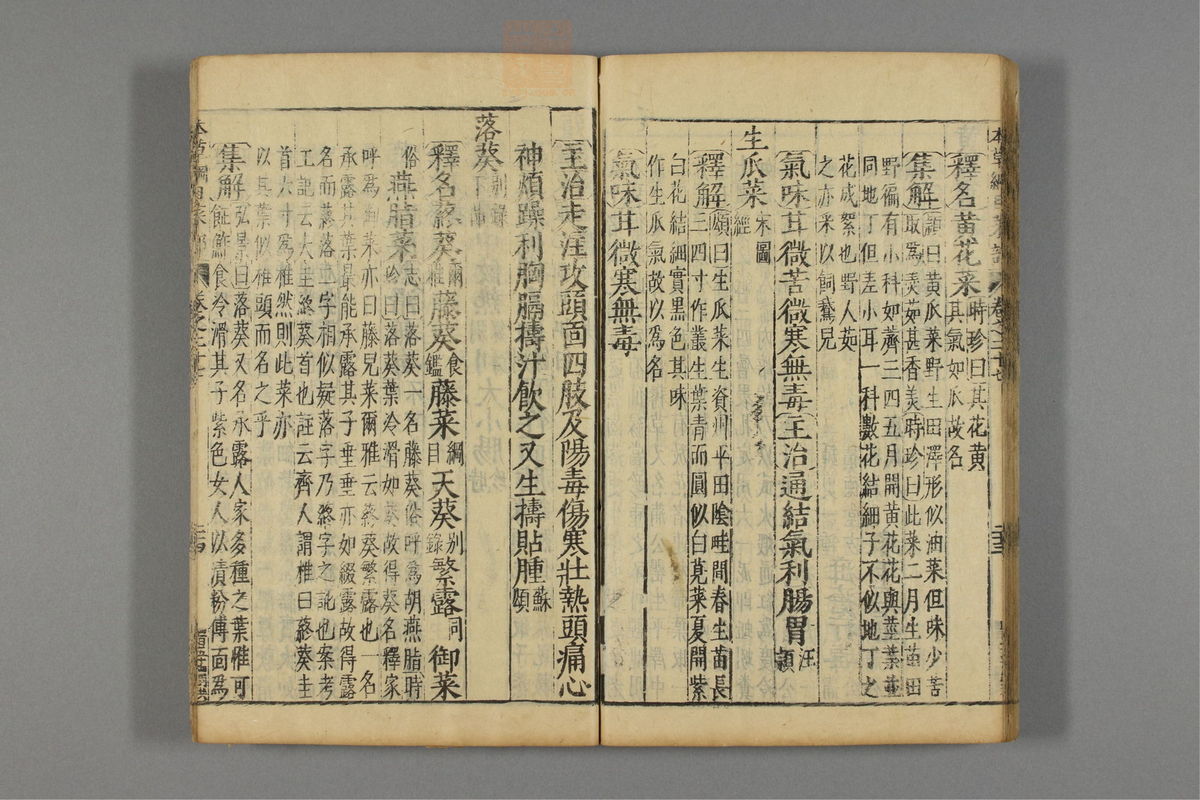 釋名黄花菜時珍曰其花黄
其氣如瓜故名
集解頴曰黄瓜菜野生田澤形似油菜但味少苦
取爲羹茹甚香美時珍曰此菜二月生苗田
野徧有小科如薺三四五月開黄花花與莖葉並
同地丁但差小耳一科數花結細子不似地丁之
花成絮也野人茹
之亦采以飼鵞兒
氣味甘微苦微寒無毒主治通結氣利腸胃汪頴
生瓜菜圖經
釋解頌曰生瓜菜生資州平田陰畦間春生苗長
三四寸作叢生葉青而圓似白莧菜夏開紫
白花結細實黒色其味
作生瓜氣故以爲名
氣味甘微寒無毒
主治走注攻頭面四肢及陽毒傷寒壯熱頭痛心
神煩躁利胸膈擣汁飲之又生擣貼腫蘇頌
落葵别錄下品
釋名蔠葵爾雅藤葵食鑑藤菜綱目天葵别錄繁露同御菜
俗燕脂菜志曰落葵一名藤葵俗呼爲胡燕脂時
珍曰落葵葉冷滑如葵故得葵名釋家
呼爲御菜亦曰藤兒菜爾雅云蔠葵繁露也一名
承露其葉最能承露其子垂垂亦如綴露故得露
名而蔠落二字相似疑落字乃蔠字之訛也案考
工記云大圭終葵首也註云齊人謂椎曰終葵圭
首六寸爲椎然則此菜亦
以其葉似椎頭而名之乎
集解弘景曰落葵又名承露人家多種之葉惟可
䬪鮓食冷滑其子紫色女人以漬粉傅面爲